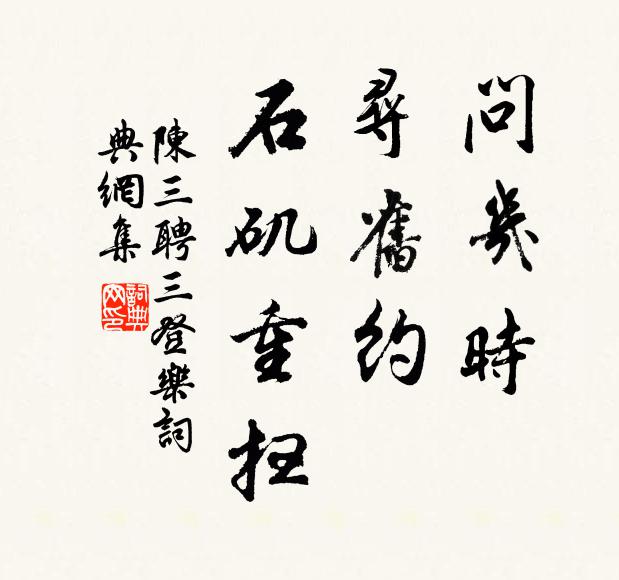 問幾時
尋舊約
石矶重扫
陳三聘三登樂詞
典網集
詞典
网印